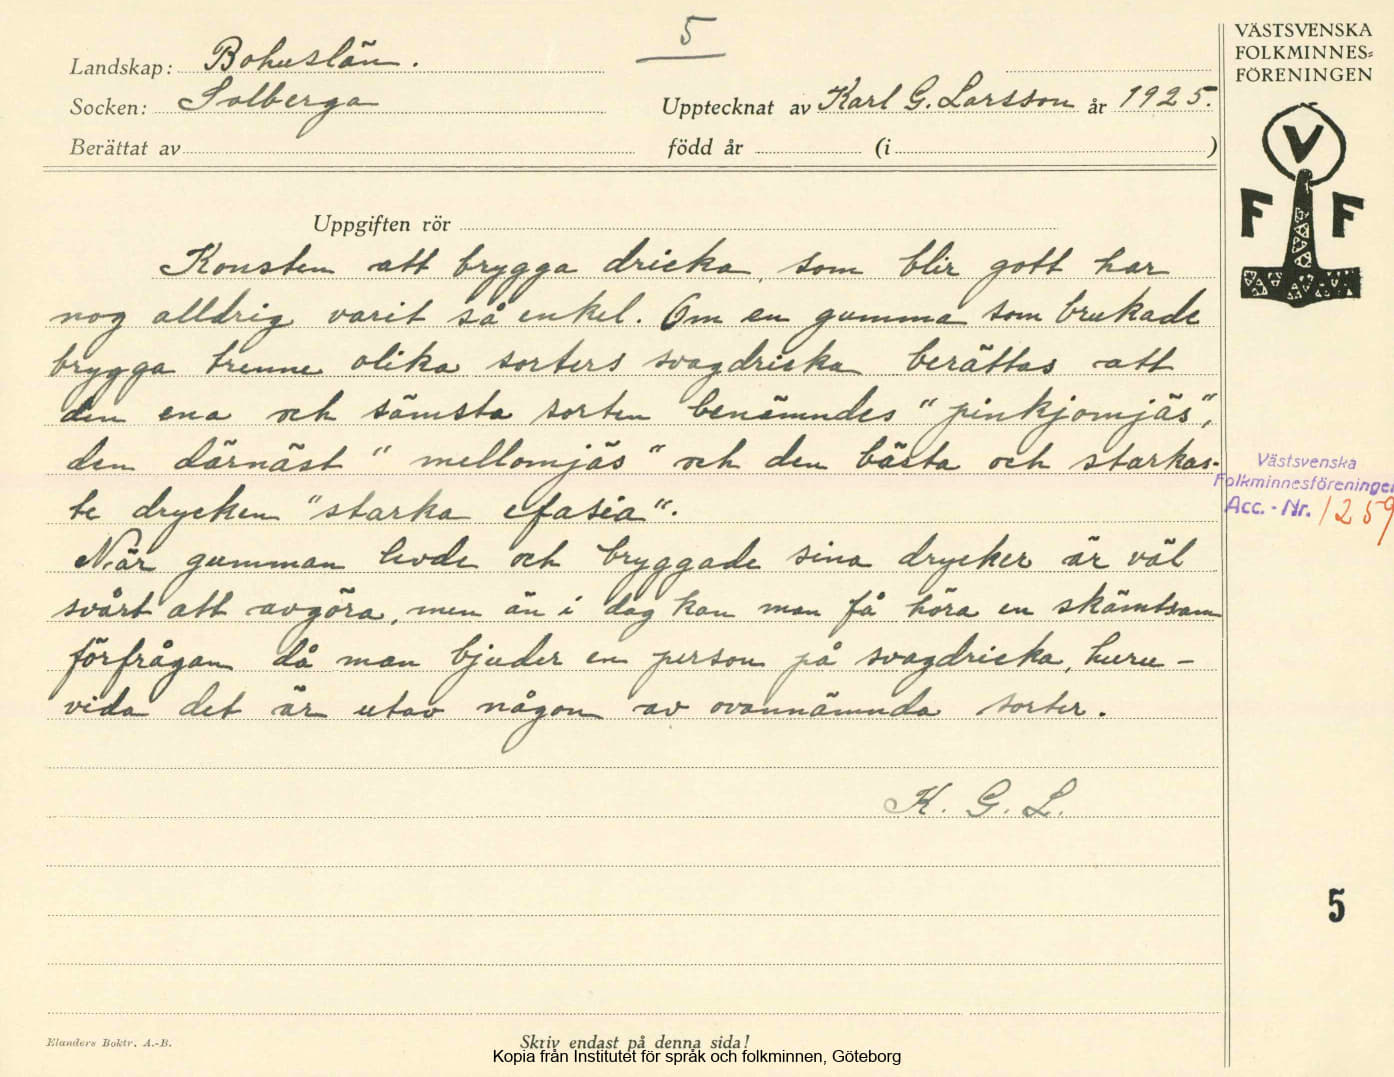 5
VÄSTSVENSKA
FOLKMINNES=
FÖRENINGEN
Landskap: Bohuslän.
Socken: Solberga
Upptecknat av Karl G. Larsson år 1925.
Berättat av
född år (i )
V
F F
Uppgiften rör
Konsten att brygga dricka, som blir gott har
nog alldrig varit så enkel. Om en gumma som brukade
brygga trenne olika sorters svagdricka berättas att
den ena och sämsta sorten benämndes "pinkjomjäs",
den därnäst "mellomjäs" och den bästa och starkas-
te drycken "starka efasia".
När gumman levde och bryggade sina drycker är väl
svårt att avgöra, men än i dag kan man få höra en skämtsam
förfrågan då man bjuder en person på svagdricka, huru-
vida det är utav någon av ovannämnda sorter.
K. G. L.
Västsvenska
Folkminnesföreningen
Acc. - Nr. 1259
5
Elanders Boktr. A.-B.
Skriv endast på denna sida!
Kopia från Institutet för språk och folkminnen, Göteborg